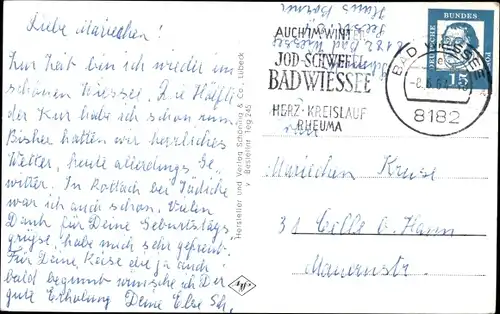 Liebe Mariechen!
Kur hat bin ich wieder im
schönen Wiessee. Die Hälfte
der Kur habe ich schon um.
Bisher hatten wir herrliches
Wetter, heute allerdings Ge
witter. In Rottach bei
war ich auch schon. Vielen
Dank für Deine Geburtstags
grüsse, habe mich sehr gefreut.
Für Deine Reise die ja auch
bald beginnt wünsche ich Dir
gute Erholung Deine Else Sch.
Hersteller und Verlag Schöning & Co., Lübeck
Besielntz Teg 245
AUCH IM WINTER
JOD-SCHWEFEL
BAD WIESSEE
HERZ-KREISLAUF
RHEUMA
8182 Bad Wiessee
Haus
DEUTSCHE BUNDESPOST
15
BAD WIESSEE
8182
Mariechen Kruse
31 Celle b. Hann
Mauernstr.